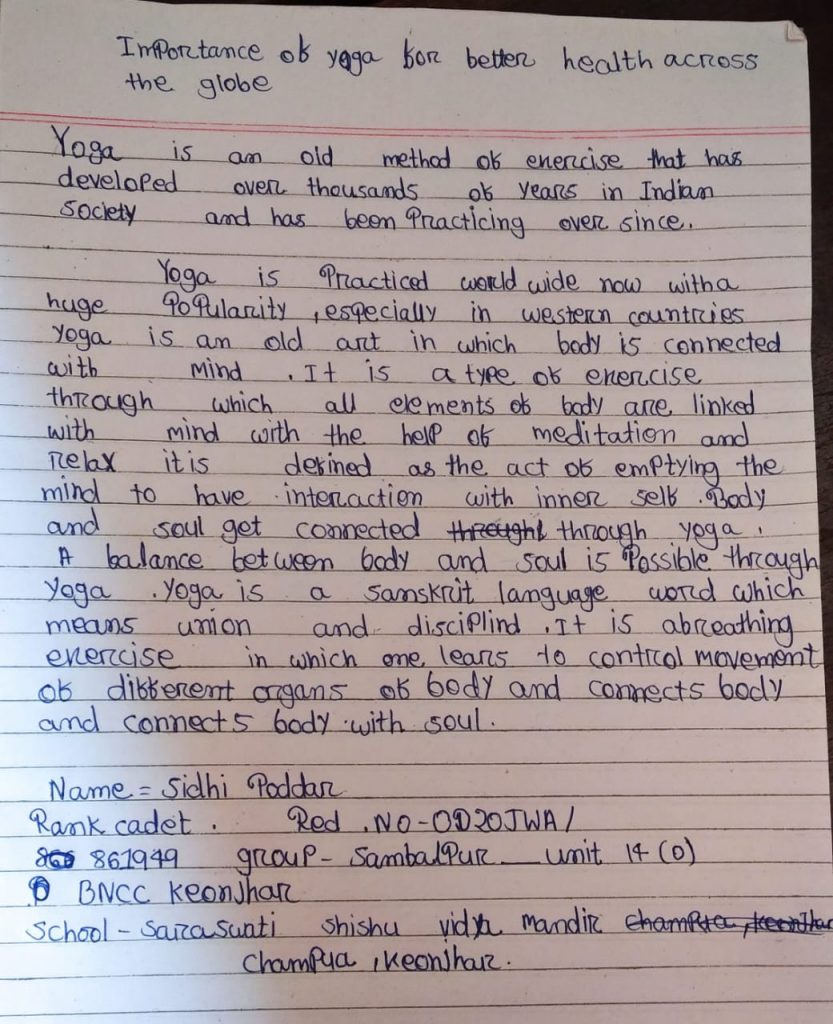 Importance of yoga for better health across
the globe
Yoga is an old method of exercise that has
developed over thousands of years in Indian
society and has been Practicing over since.
Yoga is Practiced world wide now with a
huge PoPularity , especially in western countries
Yoga is an old art in which body is connected
with mind . It is a type of exercise
through which all elements of body are linked
with mind with the help of meditation and
relax it is defined as the act of emptying the
mind to have interaction with inner self . Body
and soul get connected through yoga .
A balance between body and soul is Possible through
Yoga . Yoga is a Sanskrit language word which
means union and disciplind . It is abreathing
exercise in which one lears to control movement
of different organs of body and connects body
and connects body with soul .
Name = Sidhi Poddar
Rank cadet . Red . NO - OD20JWA/
861949 group - SambalPur unit 14 (O)
BNCC Keonjhar
School - Saraswati shishu vidya mandir
ChamPua , Keonjhar .